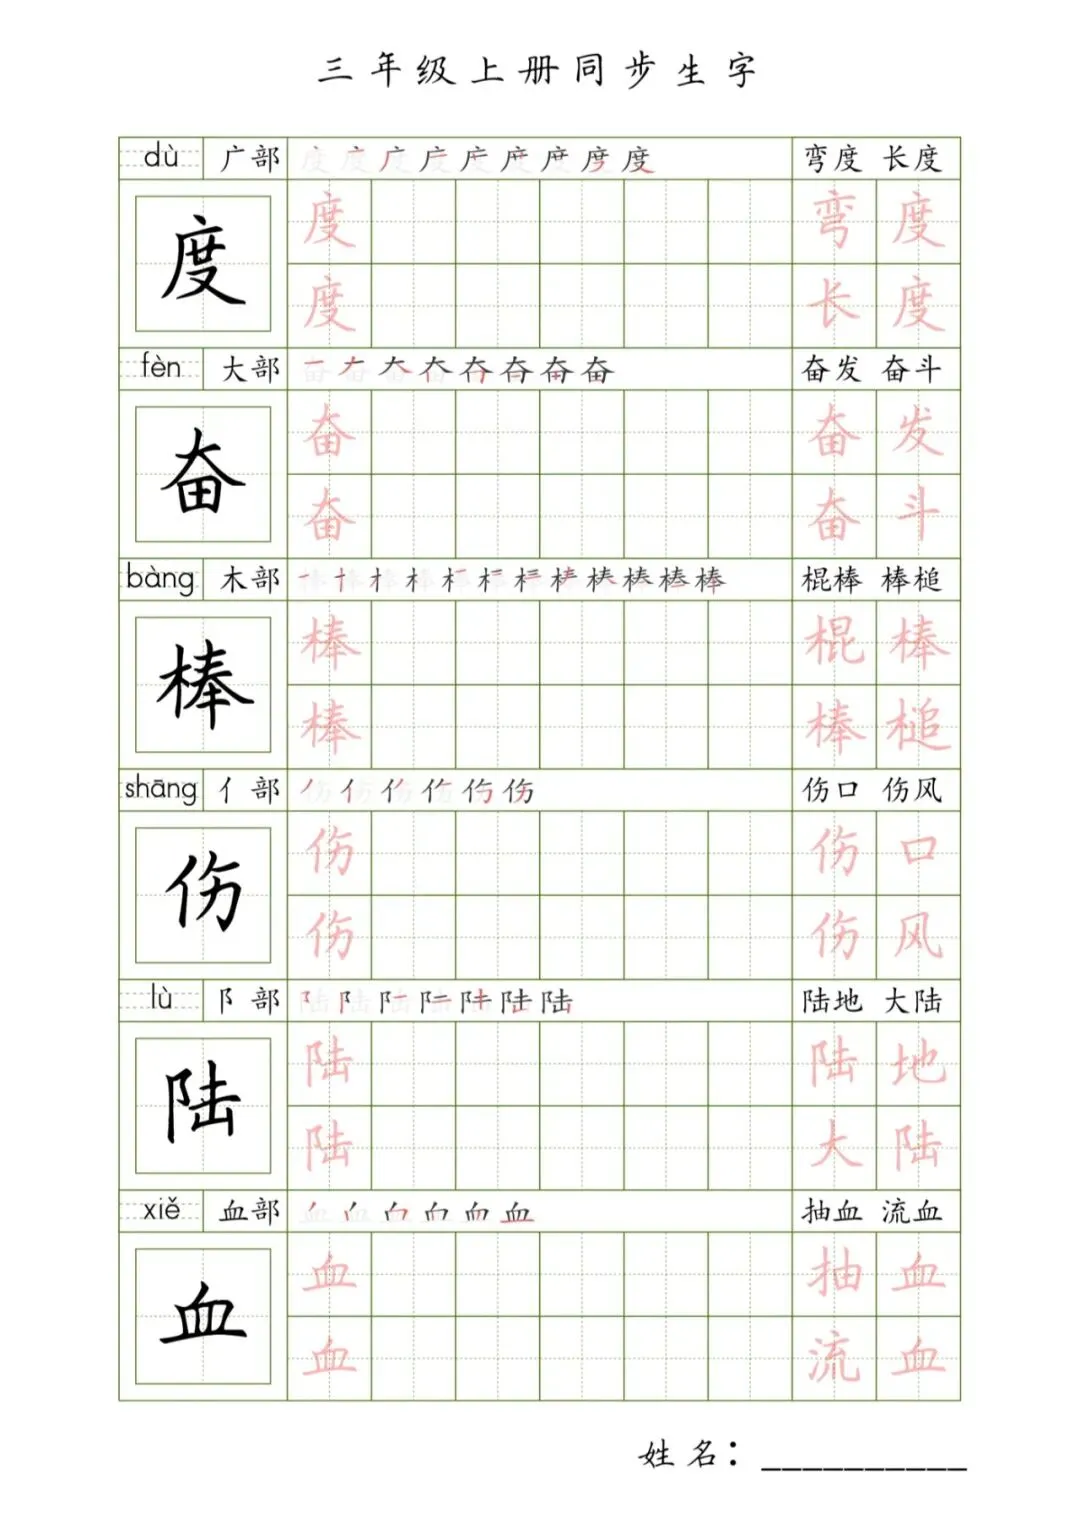 三年级上册同步生字
dù 广部 度度度度度度度度度 弯度 长度
度 度 弯度
度 长度
fèn 大部 奋奋奋奋奋奋奋奋 奋发 奋斗
奋 奋 奋发
奋 奋斗
bàng 木部 棒棒棒棒棒棒棒棒棒棒棒棒 棍棒 棒槌
棒 棒 棍棒
棒 棒槌
shāng 亻部 伤伤伤伤伤伤 伤口 伤风
伤 伤 伤口
伤 伤风
lù 阝部 陆陆陆陆陆陆陆 陆地 大陆
陆 陆 陆地
陆 大陆
xiě 血部 血血血血血血 抽血 流血
血 血 抽血
血 流血
姓名：__________